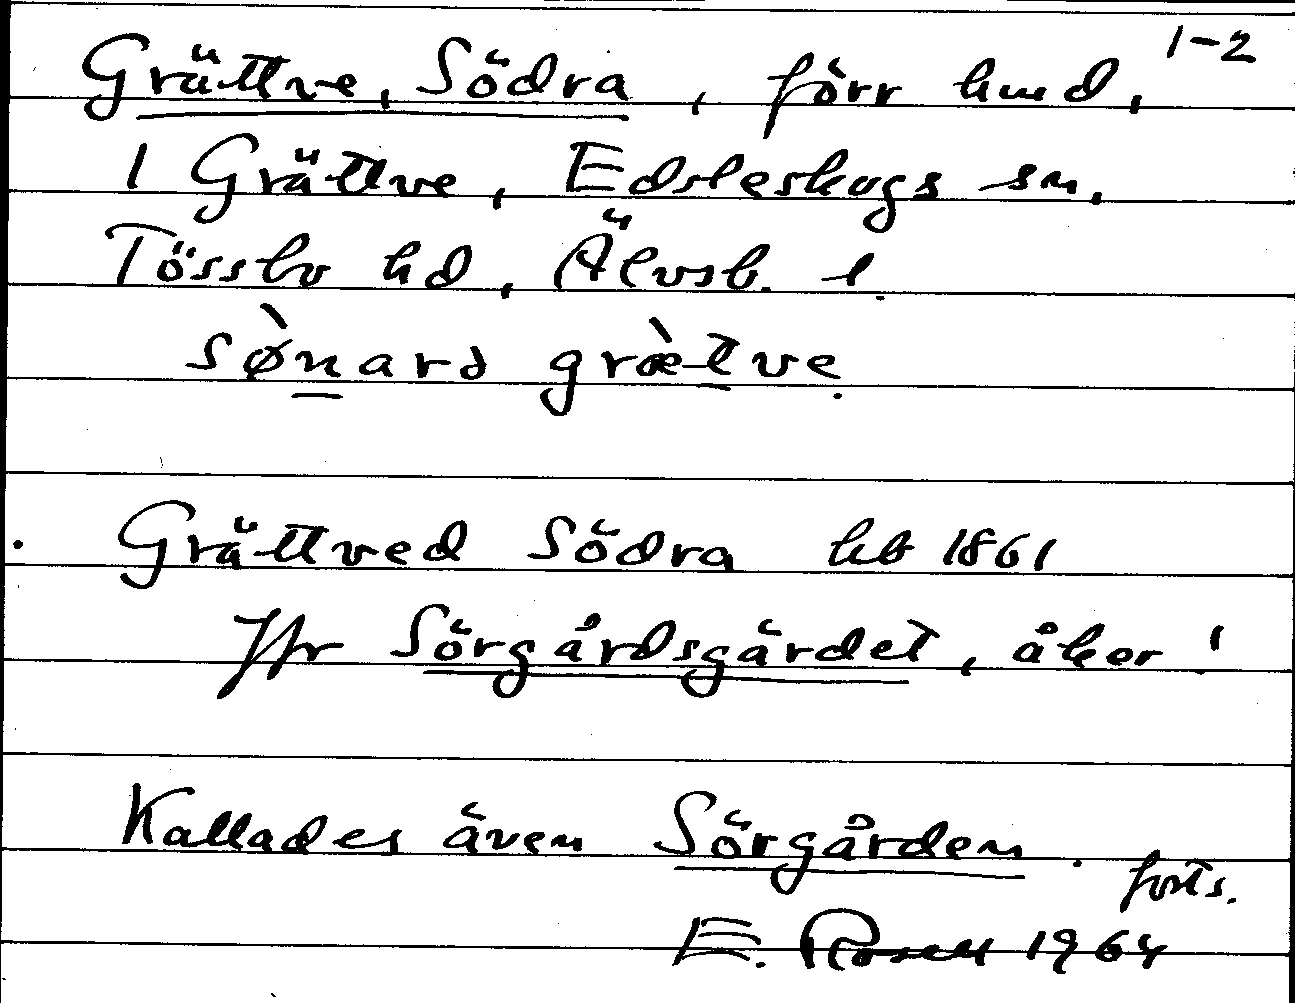 1-2
Grättve, Södra, förr hmd,
i Grättve, Edsleskogs sn,
Tössbo hd, Älvsb. l.
sø̀narə græ̀tve.
Grättved Södra hfb 1861
Jfr Sörgårdsgärdet, åker!
Kallades även Sörgården.
forts.
E. Rosell 1964